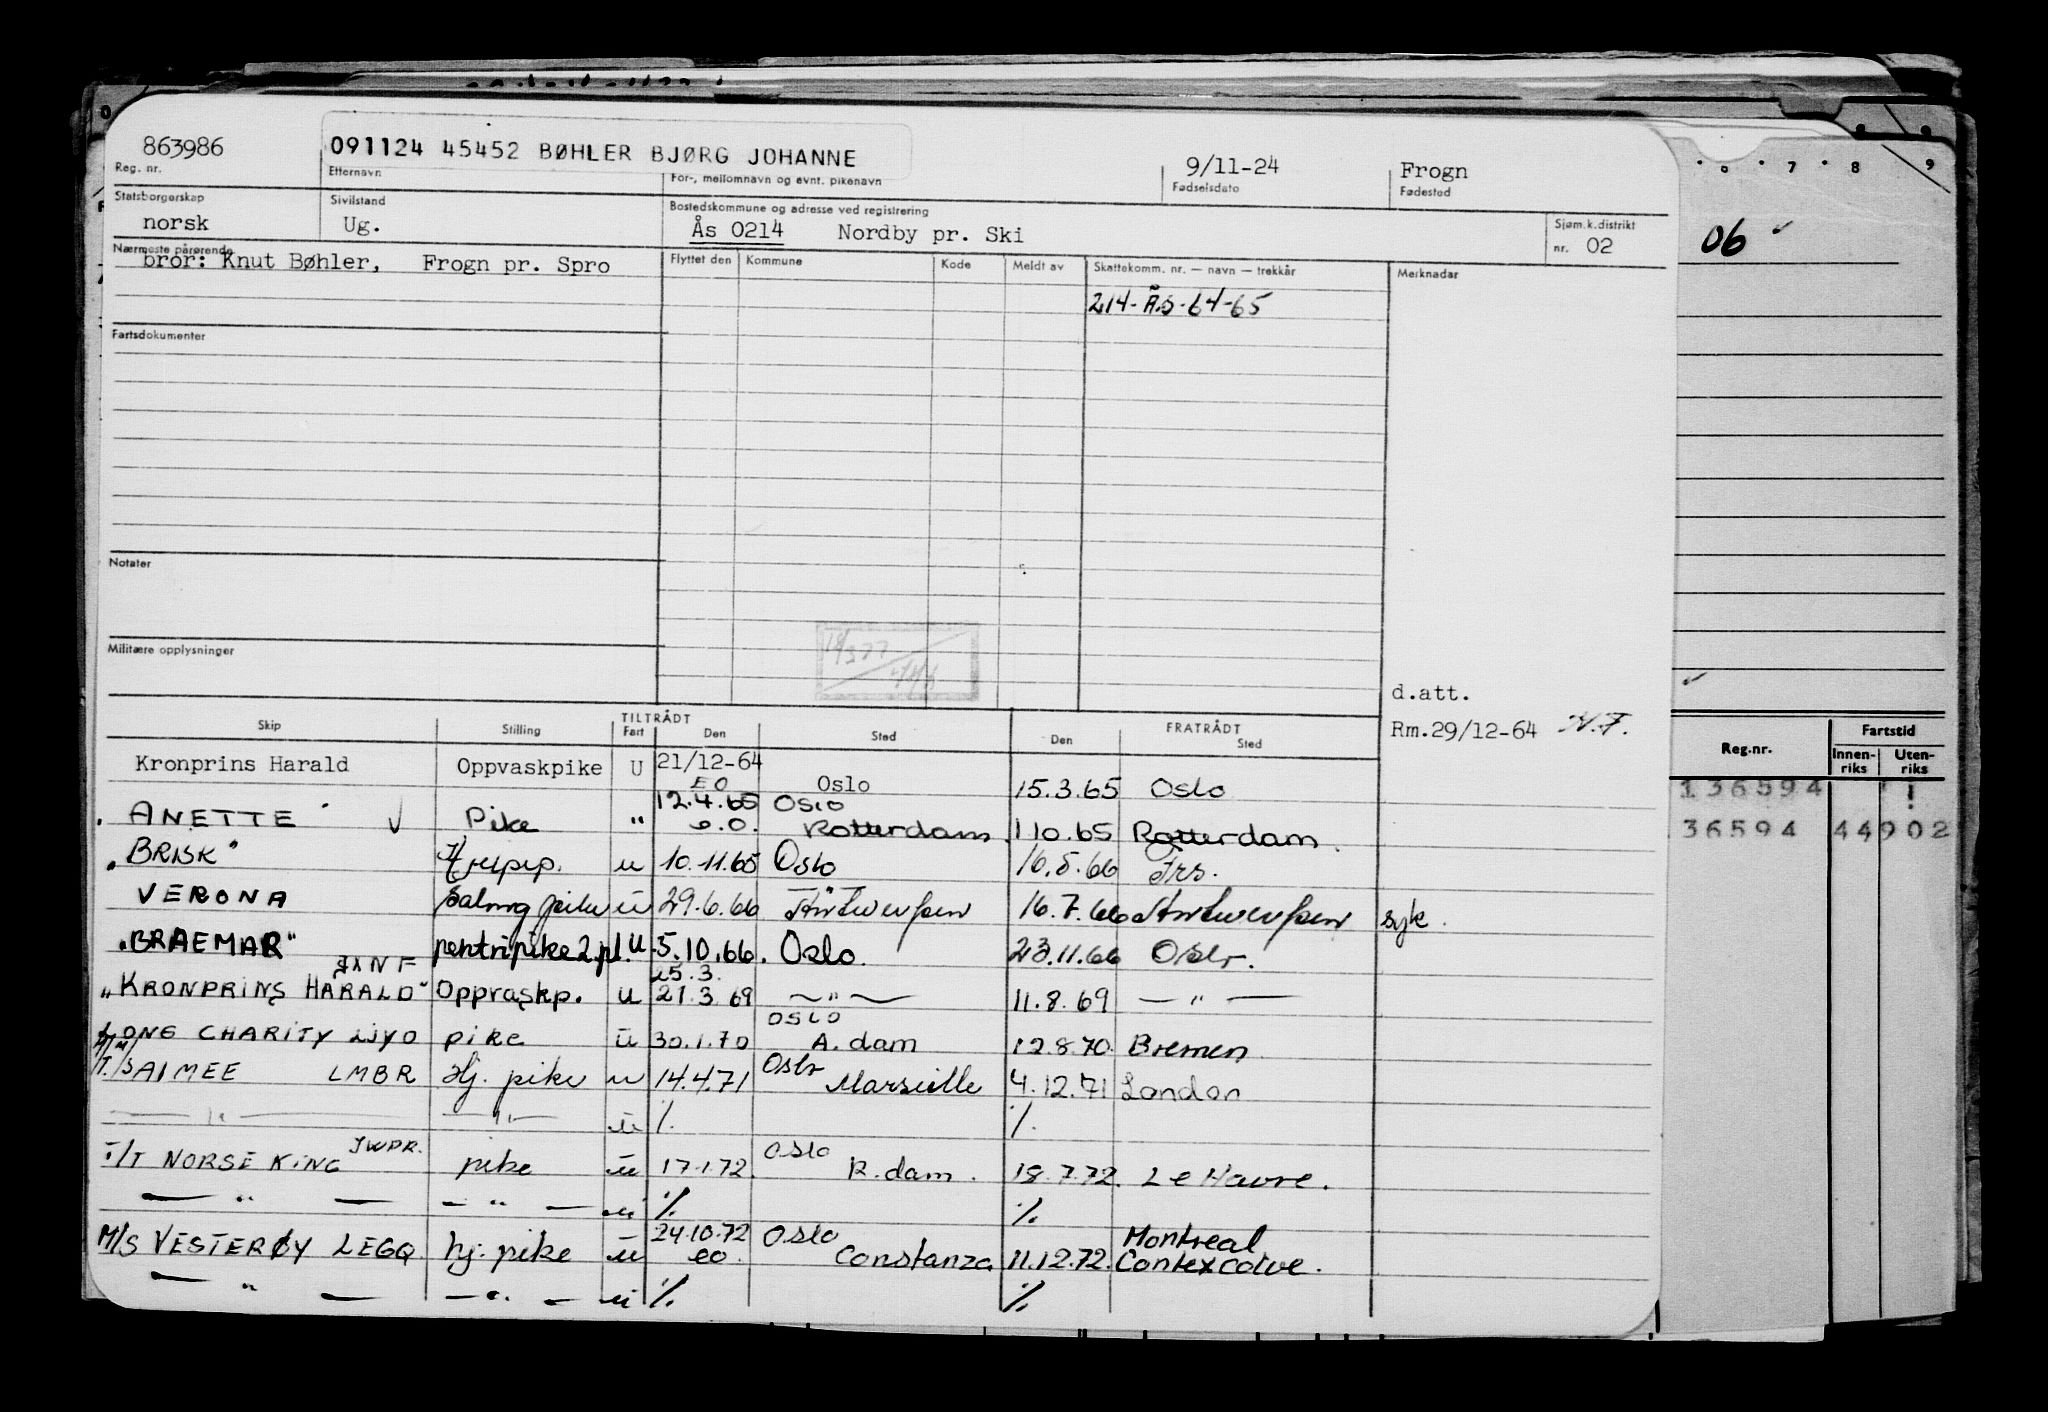 863986 091124 45452 BØHLER BJØRG JOHANNE 9/11-24 Frogn
Reg. nr. Etternavn For-, mellomnavn og evnt. pikenavn Fødselsdato Fødested
Statsborgerskap Sivilstand Bostedskommune og adresse ved registrering Sjøm.k.distrikt
norsk Ug. Ås 0214 Nordby pr. Ski nr. 02
Nærmeste pårørende Flyttet den Kommune Kode Meldt av Skattekomm. nr. — navn — trekkår Merknader
bror: Knut Bøhler, Frogn pr. Spro
214-Ås-64-65
Fartsdokumenter
Notater
Militære opplysninger
d.att.
Rm.29/12-64 N.F.
TILTRÅDT FRATRÅDT
Skip Stilling Fart Den Sted Den Sted
Kronprins Harald Oppvaskpike U 21/12-64 EO Oslo 15.3.65 Oslo
ANETTE Pike " 12.4.65 e.o. Oslo Rotterdam 1 10.65 Rotterdam.
"BRISK" Hjelpep. u 10.11.65 Oslo 16.5.66 Frs.
VERONA Salong pike u 29.6.66 Antwerpen 16.7.66 Antwerpen syk.
"BRAEMAR" pentripike 2.pl. U 5.10.66. Oslo. 23.11.66 Oslo.
JXNF
"KRONPRINS HARALD" Oppvaskp. U 25.3. 21.3.69 — " — 11.8.69 — " —
LONG CHARITY LJYO pike u 30.1.70 OSLO A.dam 12.8.70. Bremen
T./S AIMEE LMBR Hj. pike u 14.4.71 Oslo Marseille 4.12.71 London
— " — — " — u % %
T/T NORSE KING JWPR. pike u 17.1.72. OSLO R.dam. 18.7.72. Le Havre.
— " — — " — u % %
M/S VESTERØY LEGQ. hj. pike u 24.10.72 eo. Oslo Constanza 11.12.72. Montreal Contexcolve.
— " — — " — u % %
7 8 9
06
Reg.nr. Fartstid
Innenriks Utenriks
136594 !
36594 44902